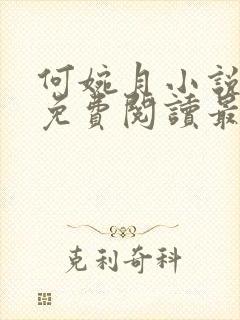 何婉月小說
免費閱讀最
克利奇科